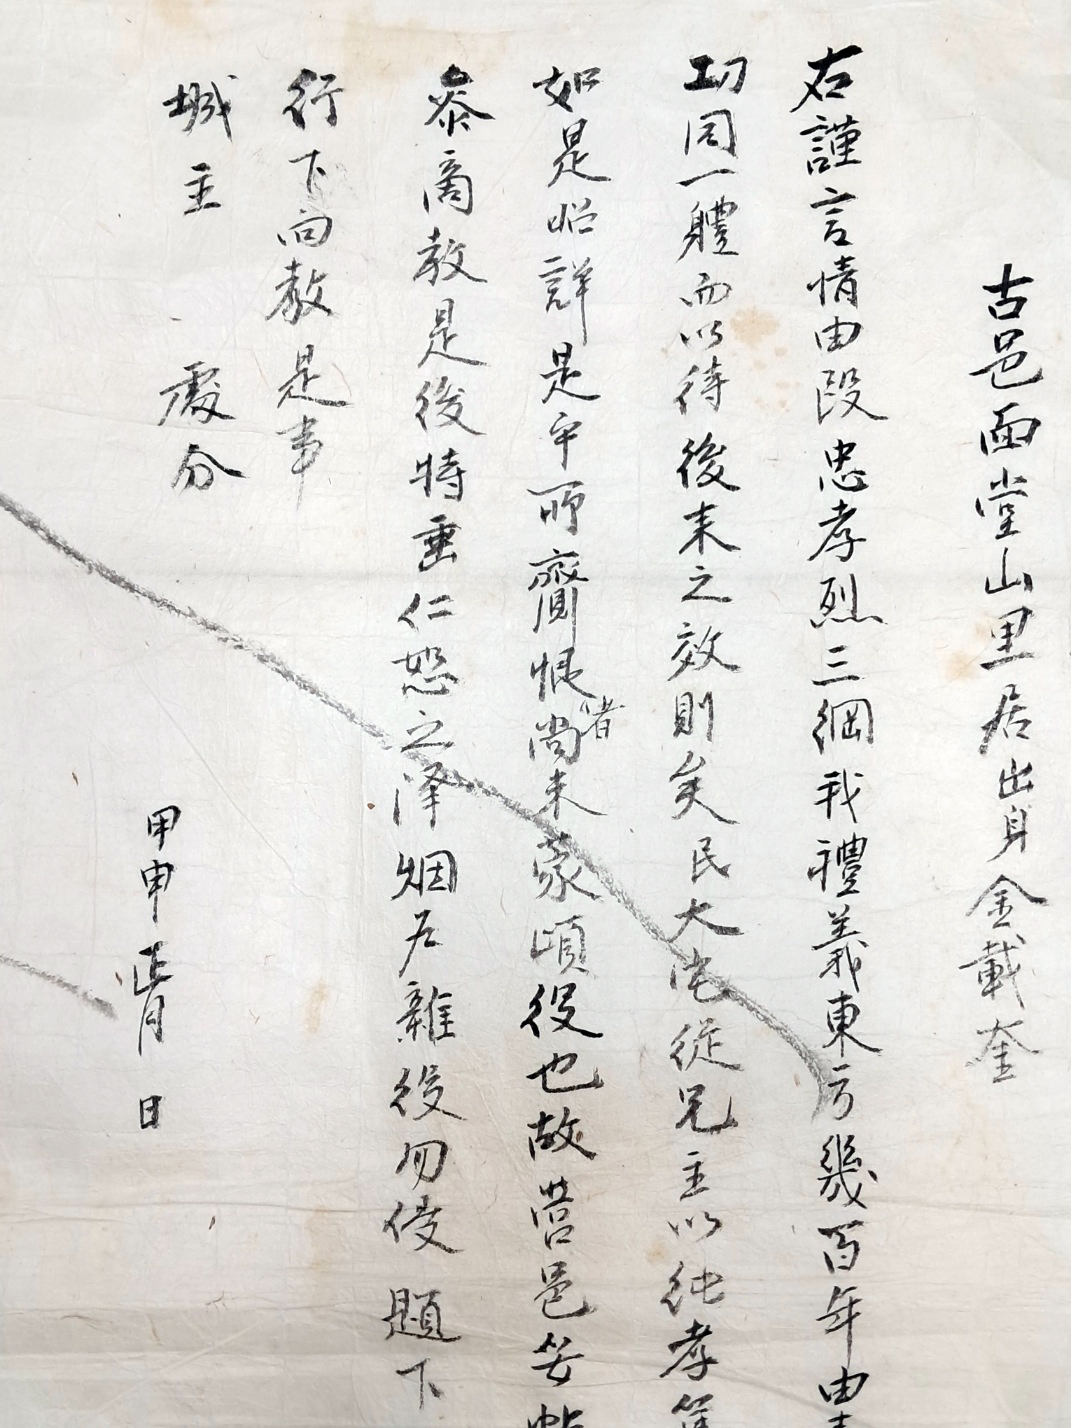 古邑面堂山里居出身金載奎
右謹言情由段忠孝烈三綱我禮義東方幾百年由
功同一體而以待後來之效則矣民大宅從兄主以純孝篤
如是昭詳是乎所齎恨者尚未蒙頉役也故營邑等帖
参商教是後特垂仁恕之泽烟户雜役勿侵題下
行下向教是事
城主 處分
甲申正月 日